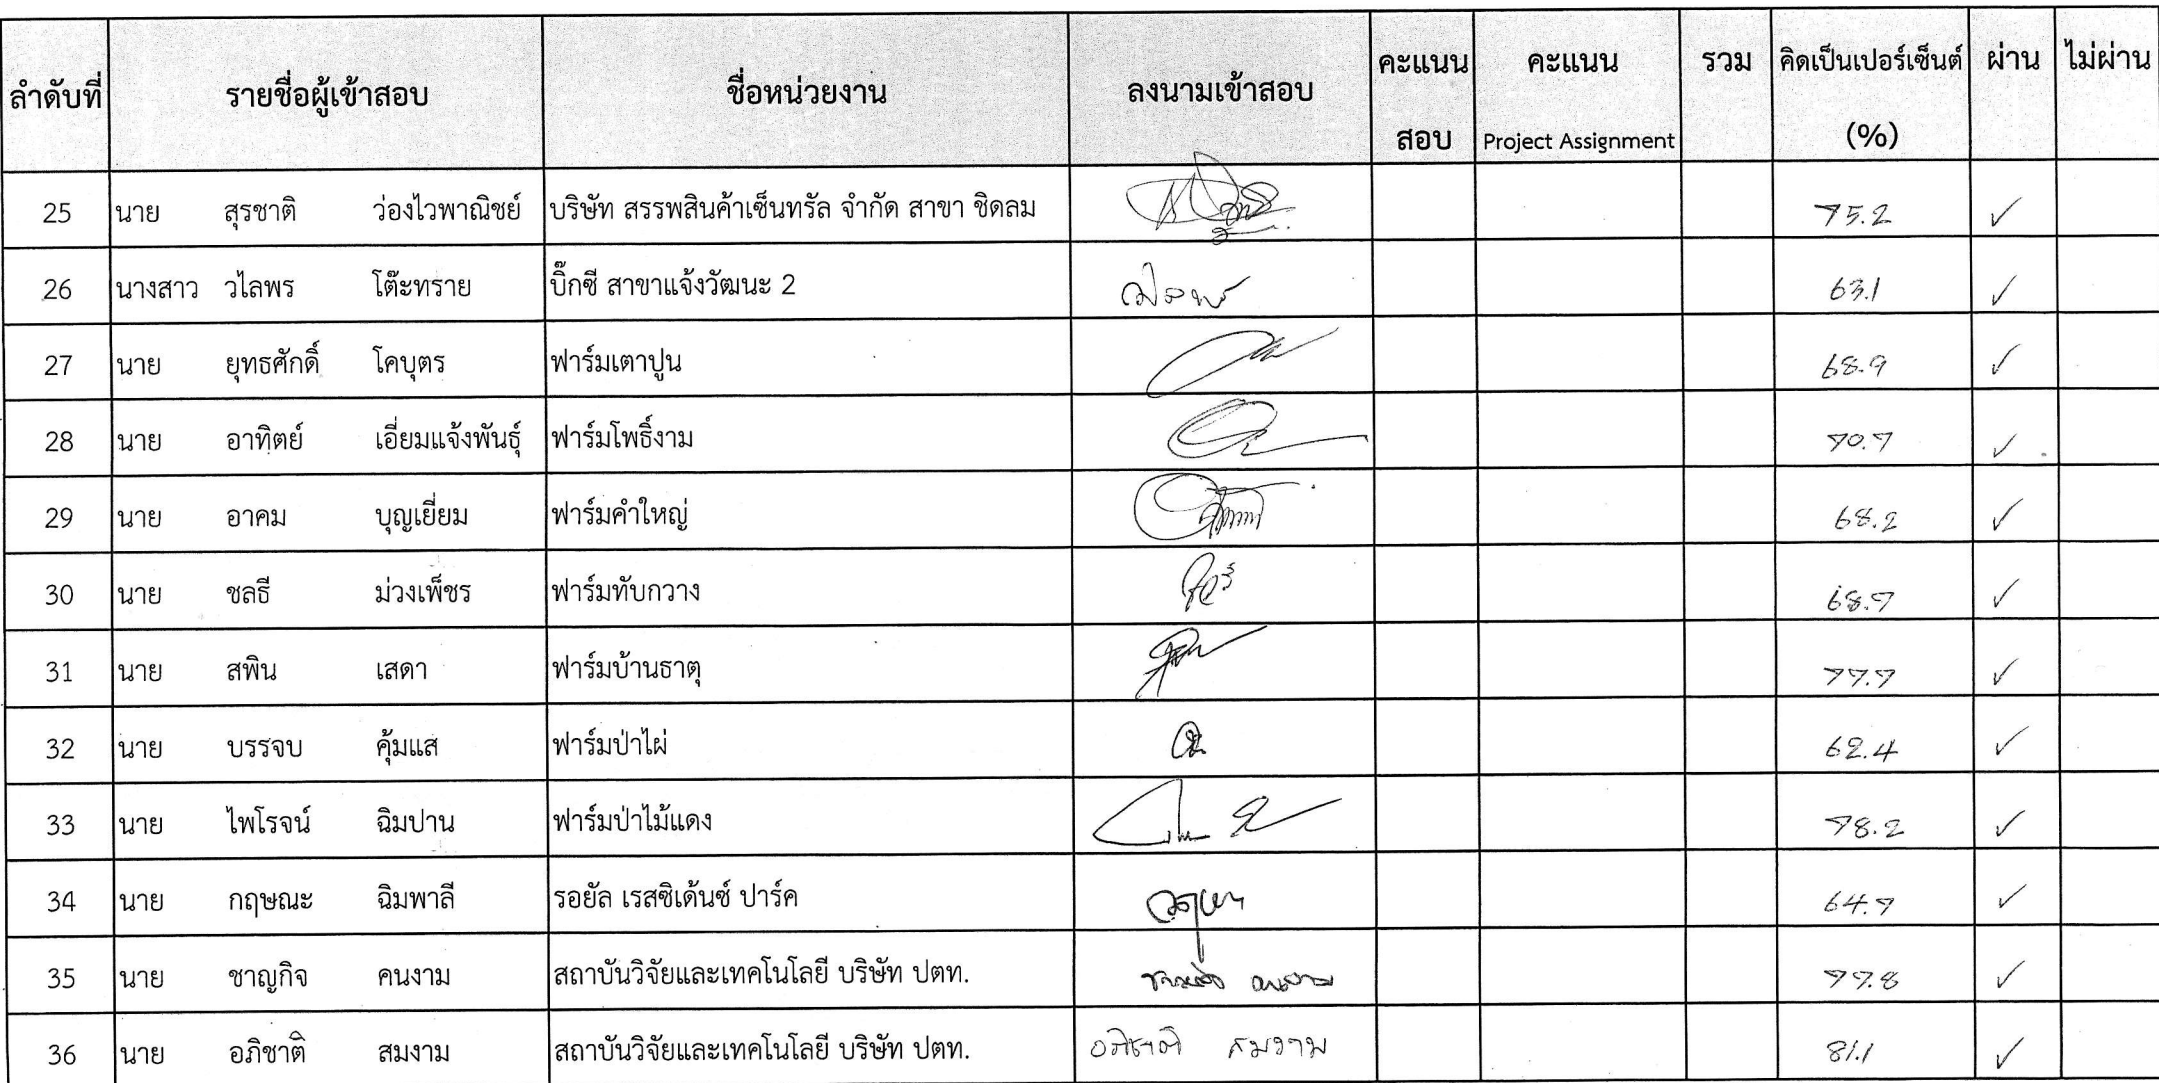 ลำดับที่ รายชื่อผู้เข้าสอบ ชื่อหน่วยงาน ลงนามเข้าสอบ คะแนน คะแนน รวม คิดเป็นเปอร์เซ็นต์ ผ่าน ไม่ผ่าน
สอบ Project Assignment (%)
25 นาย สุรชาติ ว่องไวพาณิชย์ บริษัท สรรพสินค้าเซ็นทรัล จำกัด สาขา ชิดลม 75.2 ✓
26 นางสาว วไลพร โต๊ะทราย บิ๊กซี สาขาแจ้งวัฒนะ 2 วไลพร 63.1 ✓
27 นาย ยุทธศักดิ์ โคบุตร ฟาร์มเตาปูน 68.9 ✓
28 นาย อาทิตย์ เอี่ยมแจ้งพันธุ์ ฟาร์มโพธิ์งาม 70.7 ✓
29 นาย อาคม บุญเยี่ยม ฟาร์มคำใหญ่ 68.2 ✓
30 นาย ชลธี ม่วงเพ็ชร ฟาร์มทับกวาง 68.7 ✓
31 นาย สพิน เสดา ฟาร์มบ้านธาตุ 77.7 ✓
32 นาย บรรจบ คุ้มแส ฟาร์มป่าไผ่ 62.4 ✓
33 นาย ไพโรจน์ ฉิมปาน ฟาร์มป่าไม้แดง 78.2 ✓
34 นาย กฤษณะ ฉิมพาลี รอยัล เรสซิเด้นซ์ ปาร์ค 64.7 ✓
35 นาย ชาญกิจ คนงาม สถาบันวิจัยและเทคโนโลยี บริษัท ปตท. ชาญกิจ คนงาม 77.8 ✓
36 นาย อภิชาติ สมงาม สถาบันวิจัยและเทคโนโลยี บริษัท ปตท. อภิชาติ สมงาม 81.1 ✓